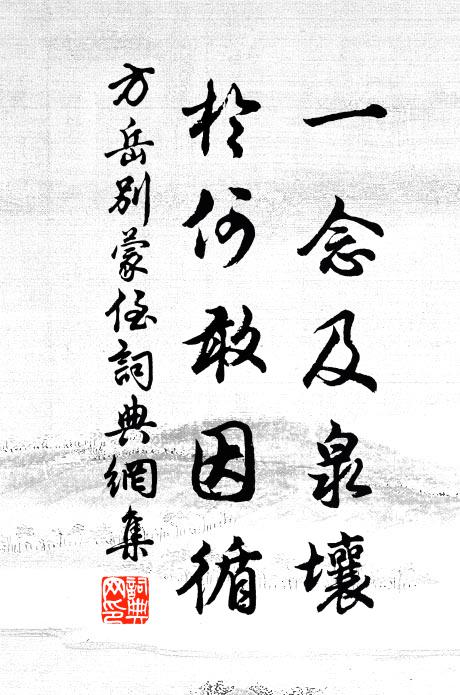 一念及泉壤
於何敢因循
方岳別蒙侄詞典網集
詞典網印